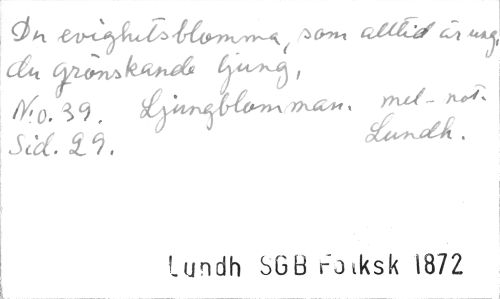 Du evighetsblomma, som alltid är ung,
du grönskande ljung,
N:o. 39. Ljungblomman. mel-not.
Sid. 29. Lundh.
Lundh SGB Folksk 1872